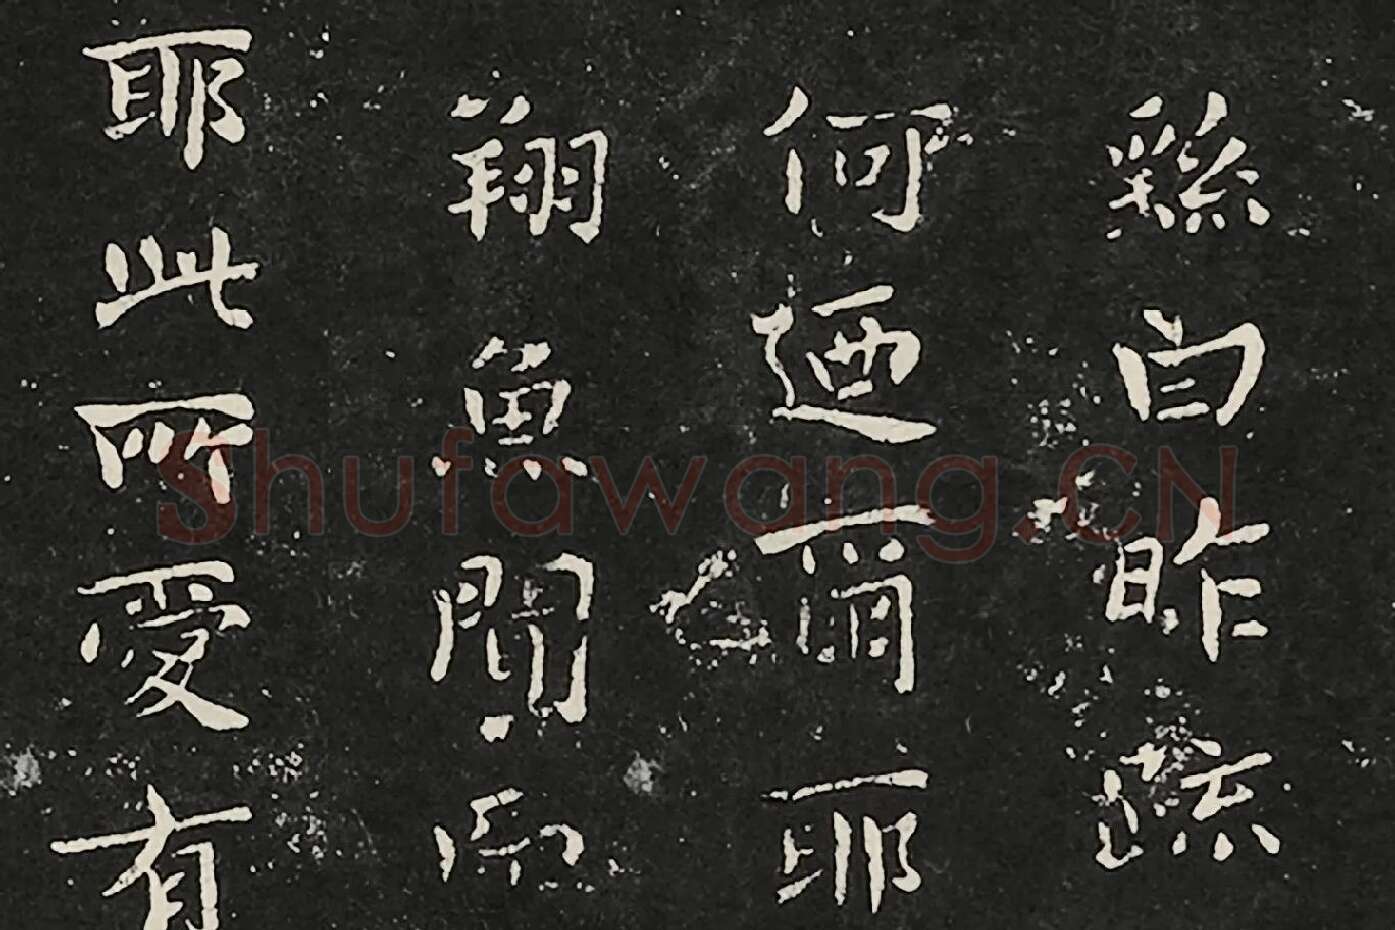 繇白昨疏
何迺爾耶
翔魚聞而
耶此所愛有
Shufawang.CN